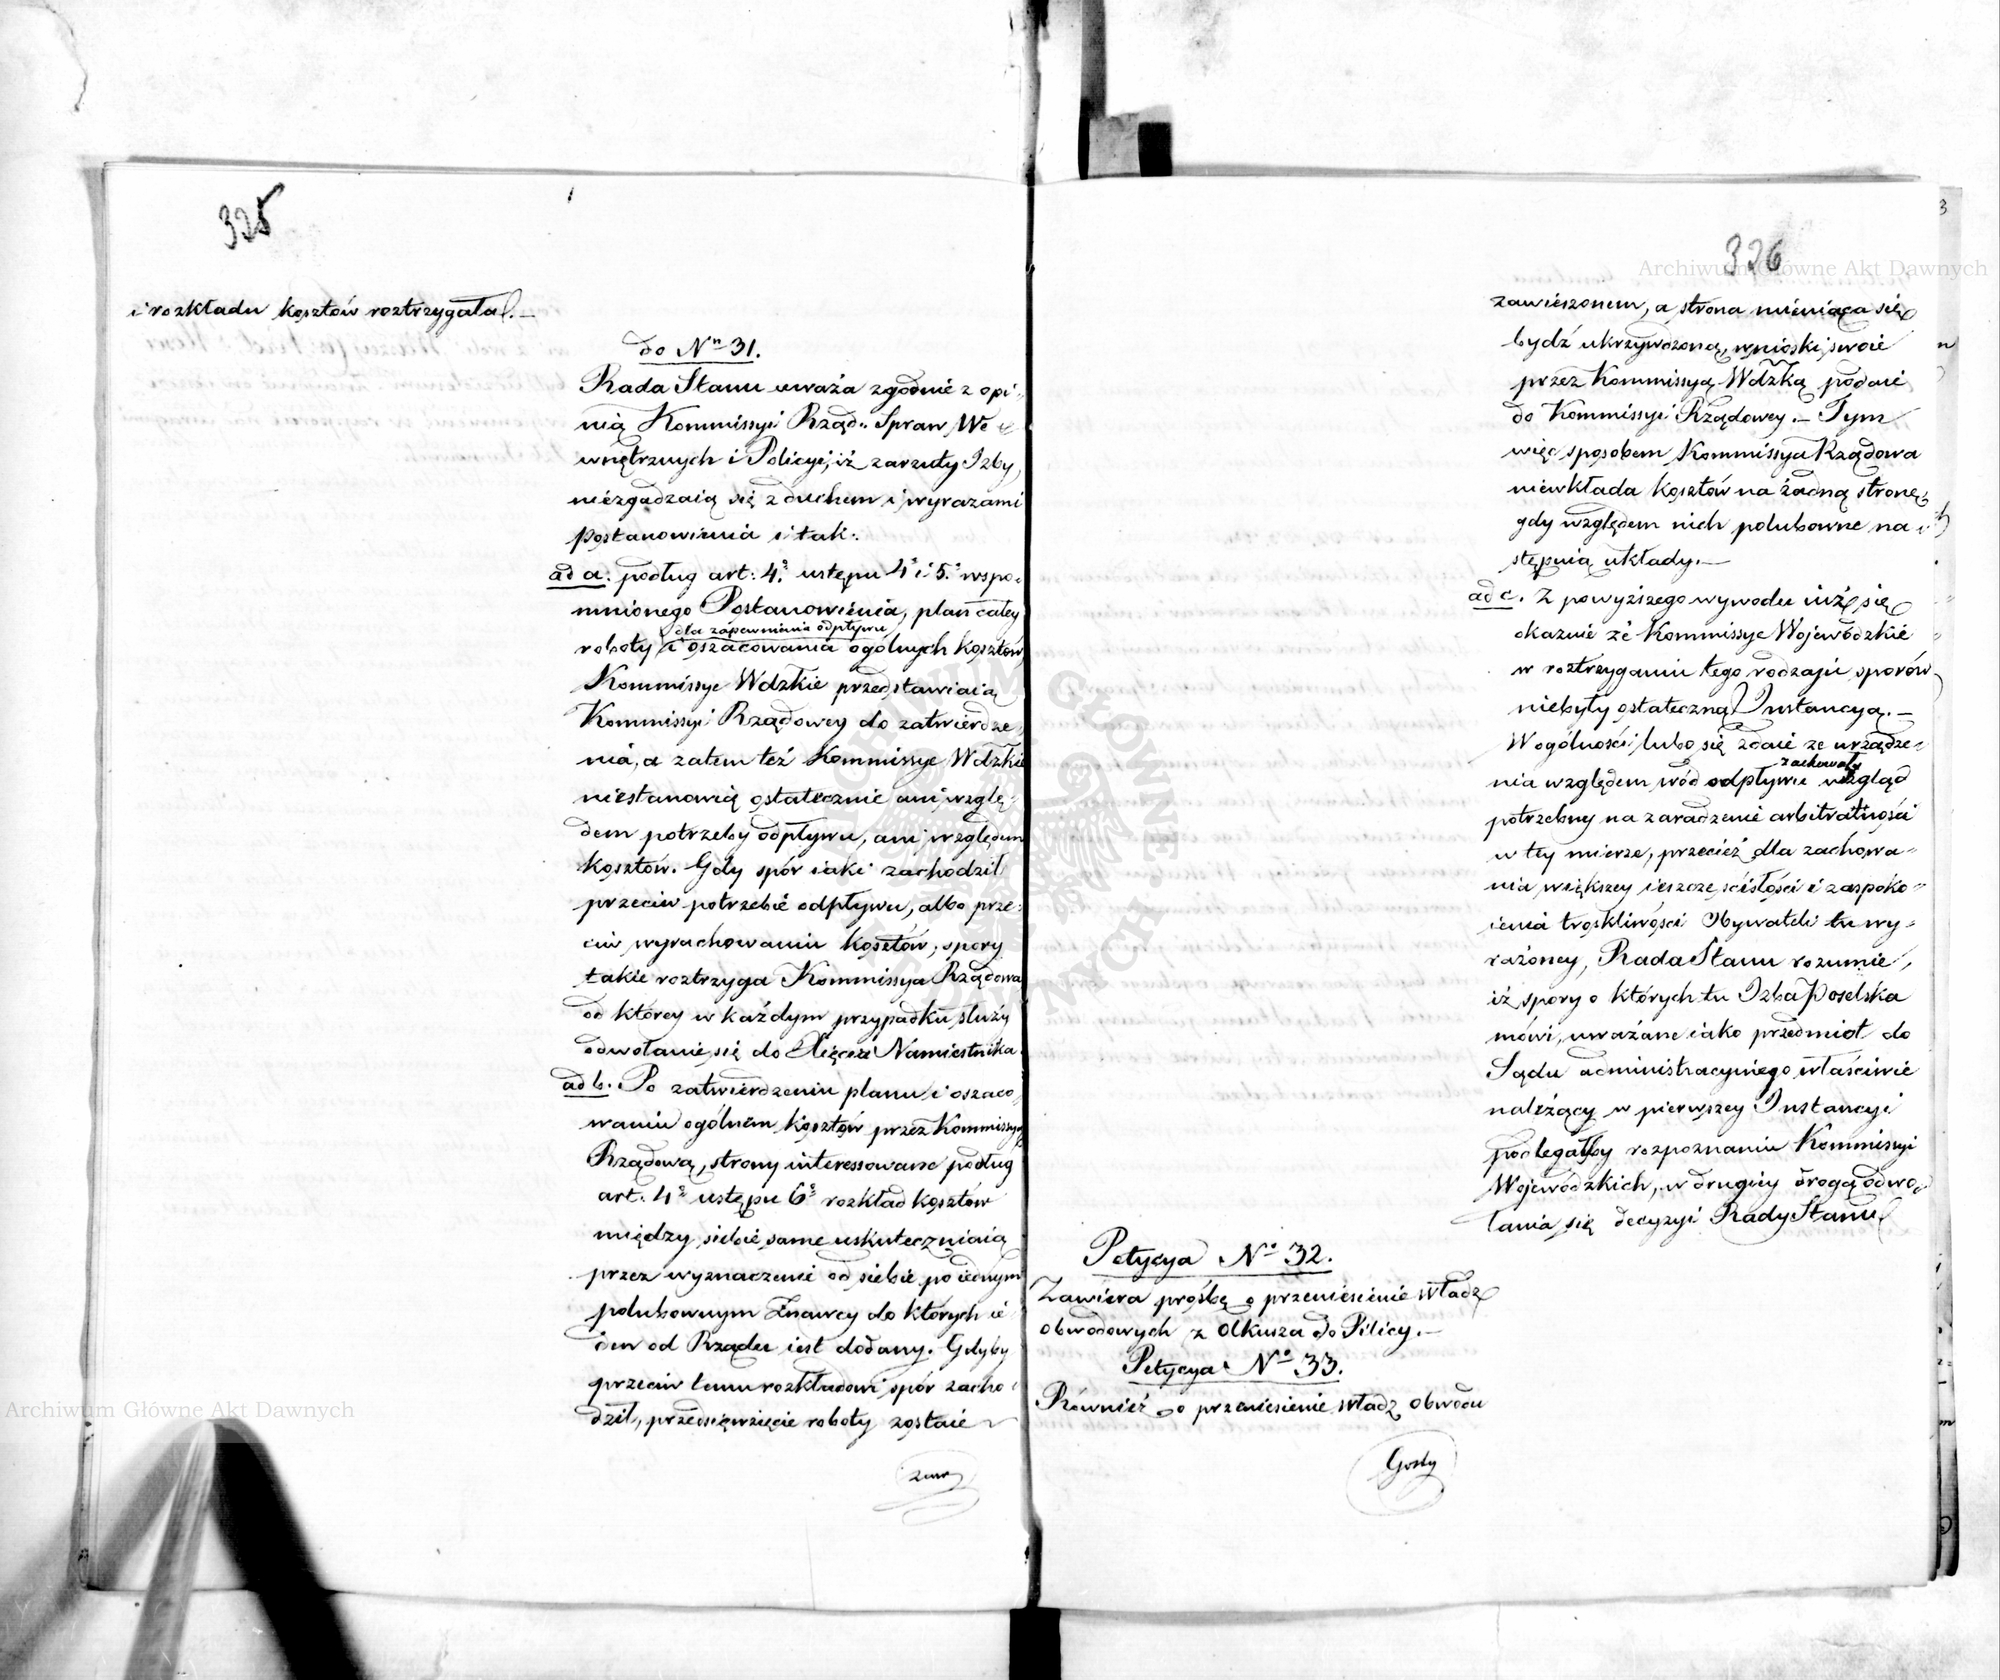 325
i rozkładu kosztów roztrzygała.—
do Nrn 31.
Rada Stanu uważa zgodnie z opi-
nią Kommissyi Rząd: Spraw We
wnętrznych i Policyi, iż zarzuty Izby,
niezgadzaią się z duchem i wyrazami
Postanowienia i tak:
ad a: podług art: 4º ustępu 4º i 5º wspo-
mnionego Postanowienia, plan całey
dla zapewnienia odpływu
roboty i oszacowania ogólnych kosztów
Kommissye Wdzkie przedstawiaią
Kommissyi Rządowey do zatwierdze-
nia, a zatem też Kommissye Wdzkie
niestanowią ostatecznie ani wzglę-
dem potrzeby odpływu, ani względem
kosztów. Gdy spór iaki zachodzil
przeciw potrzebie odpływu, albo prze-
ciw wyrachowaniu kosztów, spory
takie roztrzyga Kommissya Rządowa
od którey w każdym przypadku służy
odwołanie się do Xięcia Namiestnika.
ad b. Po zatwierdzeniu planu i oszaco-
waniu ogólnem kosztów przez Kommissyą
Rządową, strony interessowane podług
art. 4º ustępu 6º rozkład kosztów
między siebie same uskuteczniaią
przez wyznaczenie od siebie po iednym
polubownym Znawcy do których ie-
den od Rządu iest dodany. Gdyby
przeciw temu rozkładowi spór zacho-
dził, przedsięwzięcie roboty zostaie
zaw
326
zawieszonem, a strona mieniąca się
bydź ukrzywdzoną, wnioski swoie
przez Kommissyą Wdzką podaie
do Kommissyi Rządowey.— Tym
więc sposobem Kommissya Rządowa
niewkłada kosztów na żadną stronę,
gdy względem nich polubowne na-
stępuią układy.—
ad c. Z powyższego wywodu iuż się
okazuie że Kommissye Wojewódzkie
w roztrzyganiu tego rodzaju sporów
niebyły ostateczną Instancyą.—
W ogólności lubo się zdaie ze urządze-
zachowały
nia względem wód odpływu wzgląd
potrzebny na zaradzenie arbitralności
w tey mierze, przecież dla zachowa-
nia większey ieszcze ścisłości i zaspoko-
ienia troskliwości Obywateli tu wy-
rażoney, Rada Stanu rozumie,
iż spory o których tu Izba Poselska
mówi, uważane iako przedmiot do
Sądu administracyinego właściwie
należący w pierwszey Instancyi
podlegałby rozpoznaniu Kommissyi
Wojewódzkich, w drugiey drogą odwo-
łania się decyzyi Rady Stanu
Petycya Nº 32.
Zawiera prośbę o przeniesienie władz
obwodowych z Olkusza do Pilicy.—
Petycya Nº 33.
Również o przeniesienie władz obwodu
Gosty
Archiwum Główne Akt Dawnych
Archiwum Główne Akt Dawnych